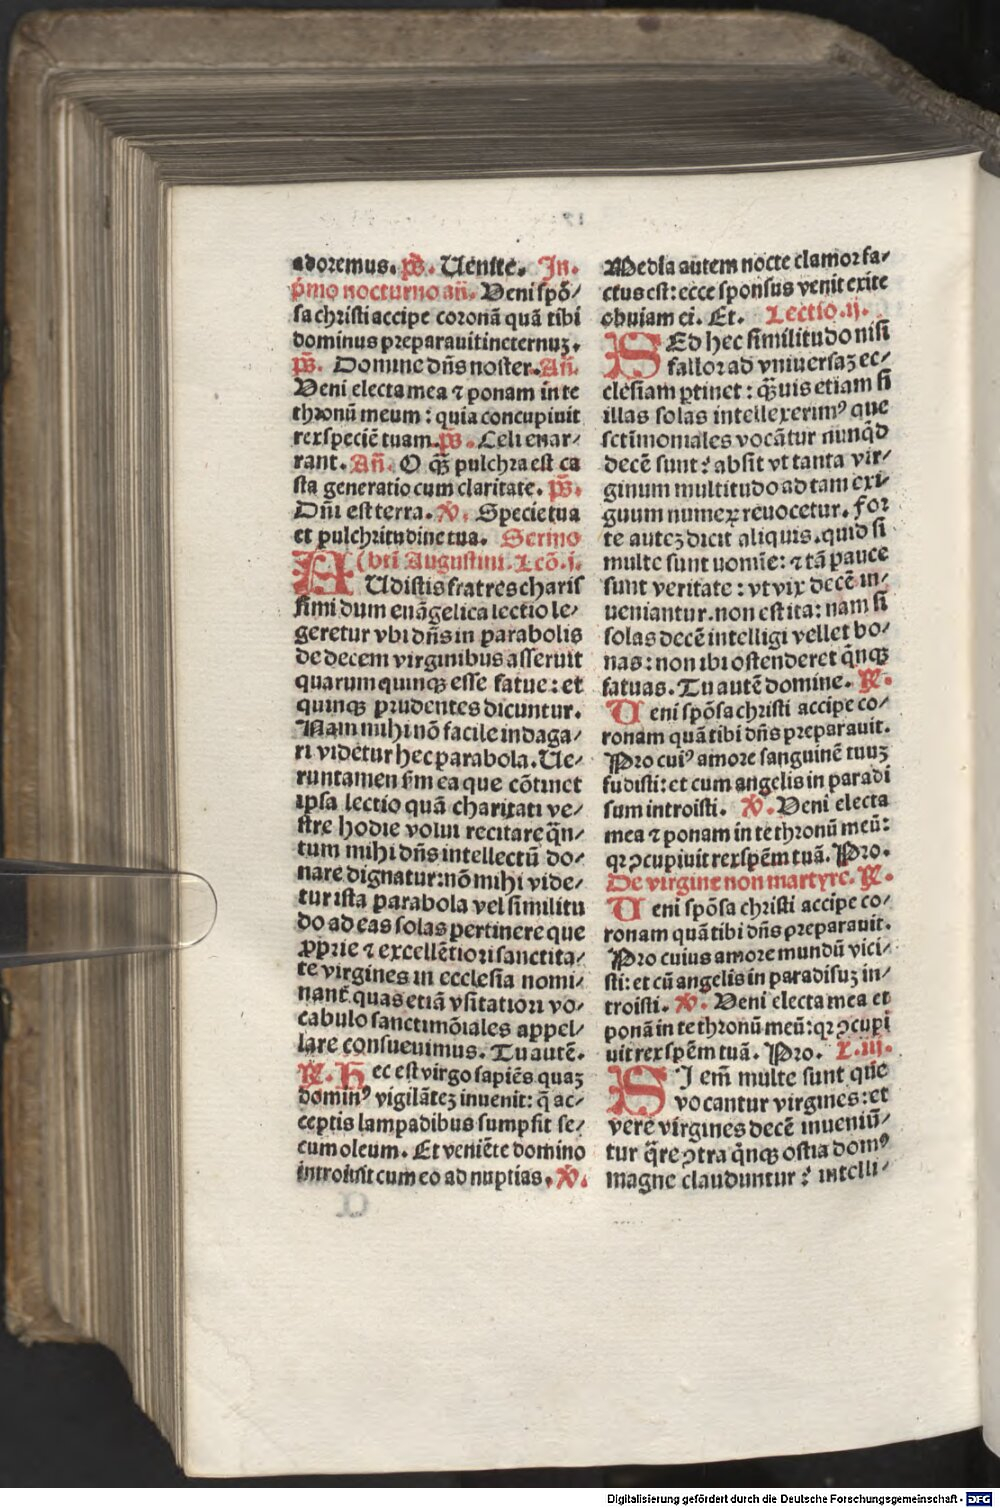 adoremus. ps̄. Uenite. In.
p̄mo nocturno an̄. Veni spō⸗
sa christi accipe coronā quā tibi
dominus preparauit ineternuz.
ps̄. Domine dn̄s noster. An̄.
Veni electa mea ⁊ ponam in te
thronū meum: quia concupiuit
rex speciē tuam. ps̄. Celi enar⸗
rant. An̄. O q̄ꝫ pulchra est ca
sta generatio cum claritate. ps̄.
Dn̄i est terra. v̄. Specie tua
et pulchritudine tua. Sermo
(bti Augustini. Lcō. j.
AUdistis fratres charis
simi dum euāgelica lectio le⸗
geretur vbi dn̄s in parabolis
de decem virginibus asseruit
quarum quinqꝫ esse fatue: et
quinqꝫ prudentes dicuntur.
Nam mihi nō facile indaga⸗
ri videtur hec parabola. Ue⸗
runtamen fm ea que cōtinet
ipsa lectio quā charitati ve⸗
stre hodie volui recitare q̄n⸗
tum mihi dn̄s intellectū do⸗
nare dignatur: nō mihi vide⸗
tur ista parabola vel similitu
do ad eas solas pertinere que
ꝓprie ⁊ excellētiori sanctita⸗
te virgines in ecclesia nomi⸗
nant̄. quas etiā vsitatiori vo⸗
cabulo sanctimōiales appel⸗
lare consueuimus. Tu autē.
R̄. Hec est virgo sapiēs quaꝫ
dominꝰ vigilāteꝫ inuenit: q̄ ac⸗
ceptis lampadibus sumpsit se⸗
cum oleum. Et veniēte domino
introiuit cum eo ad nuptias. v̄.
Media autem nocte clamor fa⸗
ctus est: ecce sponsus venit exite
obuiam ei. Et. Lectio. ij.
SEd hec similitudo nisi
fallor ad vniuersaꝫ ec⸗
clesiam ꝑtinet: q̄ꝫuis etiam si
illas solas intellexerimꝰ que
sctimoniales vocātur nunq̄d
decē sunt? absit vt tanta vir⸗
ginum multitudo ad tam exi⸗
guum numeꝝ reuocetur. for
te auteꝫ dicit aliquis. quid si
multe sunt nomīe: ⁊ tā pauce
sunt veritate: vt vix decē in⸗
ueniantur. non est ita: nam si
solas decē intelligi vellet bo⸗
nas: non ibi ostenderet q̄nqꝫ
fatuas. Tu autē domine. R̄.
Ueni spōsa christi accipe co⸗
ronam quā tibi dn̄s preparauit.
Pro cuiꝰ amore sanguinē tuuꝫ
fudisti: et cum angelis in paradi
sum introisti. v̄. Veni electa
mea ⁊ ponam in te thronū meū:
qꝛ ꝯcupiuit rex spēm tuā. Pro.
De virgine non martyre. R̄.
Ueni spōsa christi accipe co⸗
ronam quā tibi dn̄s preparauit.
Pro cuius amore mundū vici⸗
sti: et cū angelis in paradisuꝫ in⸗
troisti. v̄. Veni electa mea et
ponā in te thronū meū: qꝛ ꝯcupi
uit rex spēm tuā. Pro. L. iij.
SI em̄ multe sunt que
vocantur virgines: et
vere virgines decē inueniū⸗
tur q̄re ꝯtra q̄nqꝫ ostia domꝰ
magne clauduntur? intelli⸗
Digitalisierung gefördert durch die Deutsche Forschungsgemeinschaft - DFG